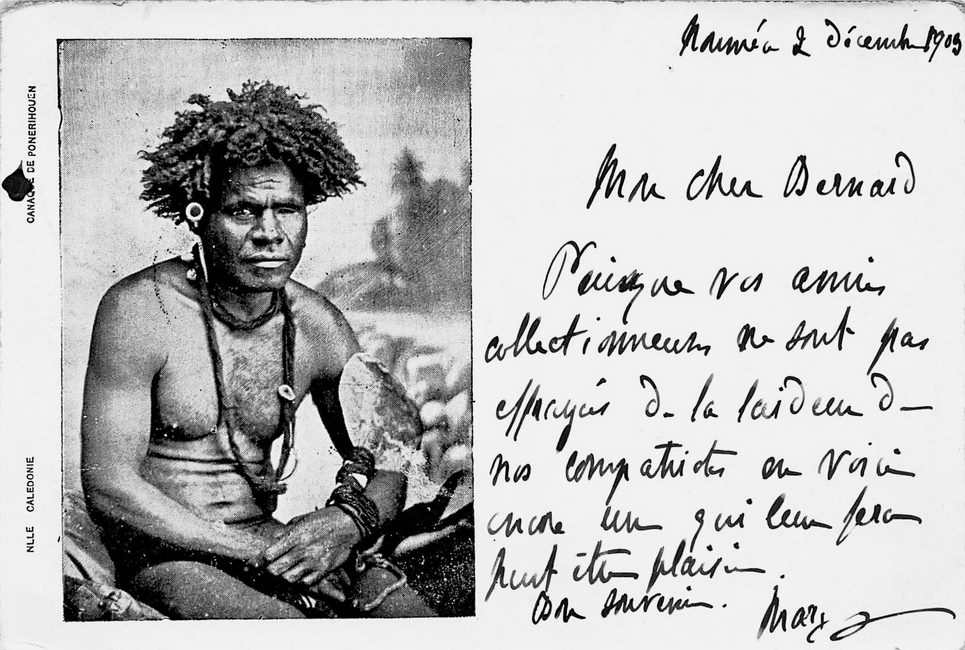 CANAQUE DE PONERIHOUEN
NLLE CALEDONIE
Nouméa 2 décembre 1903
Mon cher Bernard
Puisque vos amis
collectionneurs ne sont pas
effrayés de la laideur de
nos compatriotes en voici
encore un qui leur fera
peut être plaisir.
Bon souvenir.
Marx